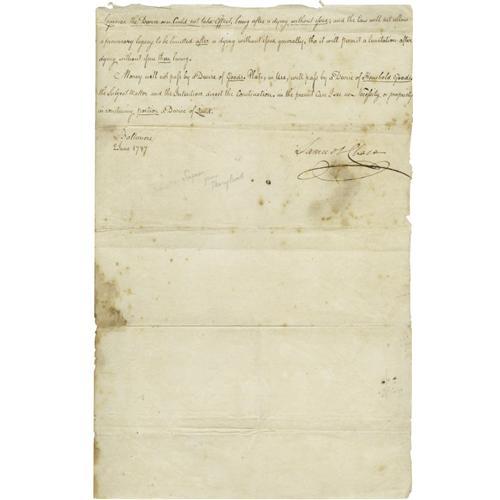 the Devise over Could not take Effect, being after a dying without issue; and the law will not allow
a pecuniary legacy to be limitted after a dying without issue generally, tho it will permit a limitation after
dying without issue then living.
Money will not pass by a Devise of Goods. Plate, in use, will pass by a Devise of Houshold Goods
the Subject Matter and the Intention direct the Construction. in the present Case I see no Necessity, or propriety
in construing portion a Devise of
Baltimore
2 June 1787
Samuel Chase
Maryland